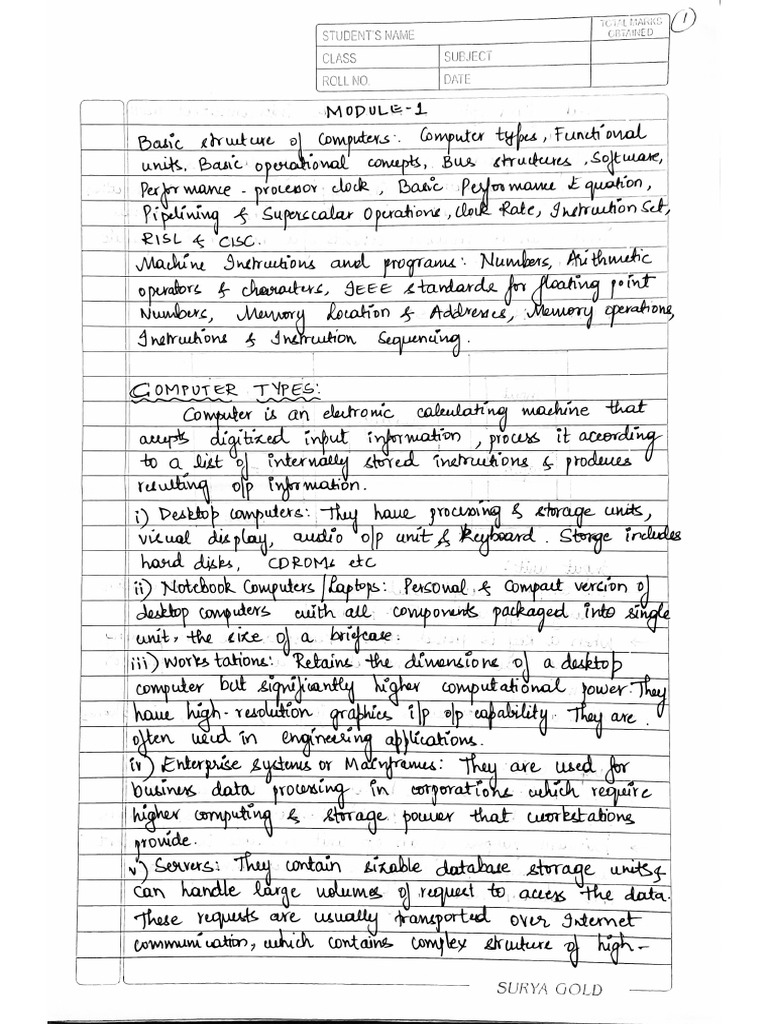 STUDENT'S NAME
TOTAL MARKS OBTAINED
1
CLASS
SUBJECT
ROLL NO.
DATE
MODULE-1
Basic structure of Computers: Computer types, Functional
units, Basic operational concepts, Bus structures, Software,
Performance - processor clock, Basic Performance Equation,
Pipelining & Superscalar Operations, Clock Rate, Instruction Set,
RISC & CISC.
Machine Instructions and programs: Numbers, Arithmetic
operators & characters, IEEE standards for floating point
Numbers, Memory Location & Addresses, Memory operations,
Instructions & Instruction Sequencing.
COMPUTER TYPES:
Computer is an electronic calculating machine that
accepts digitized input information, process it according
to a list of internally stored instructions & produces
resulting o/p information.
i) Desktop computers: They have processing & storage units,
visual display, audio o/p unit & Keyboard. Storge includes
hard disks, CDROMs etc
ii) Notebook Computers/Laptops: Personal & Compact version of
desktop computers with all components packaged into single
unit, the size of a briefcase.
iii) Workstations: Retains the dimensions of a desktop
computer but significantly higher computational power. They
have high-resolution graphics i/p o/p capability. They are
often used in engineering applications.
iv) Enterprise systems or Mainframes: They are used for
business data processing in corporations which require
higher computing & storage power that workstations
provide.
v) Servers: They contain sizable database storage units &
can handle large volumes of request to access the data.
These requests are usually transported over Internet
communication, which contains complex structure of high-
SURYA GOLD